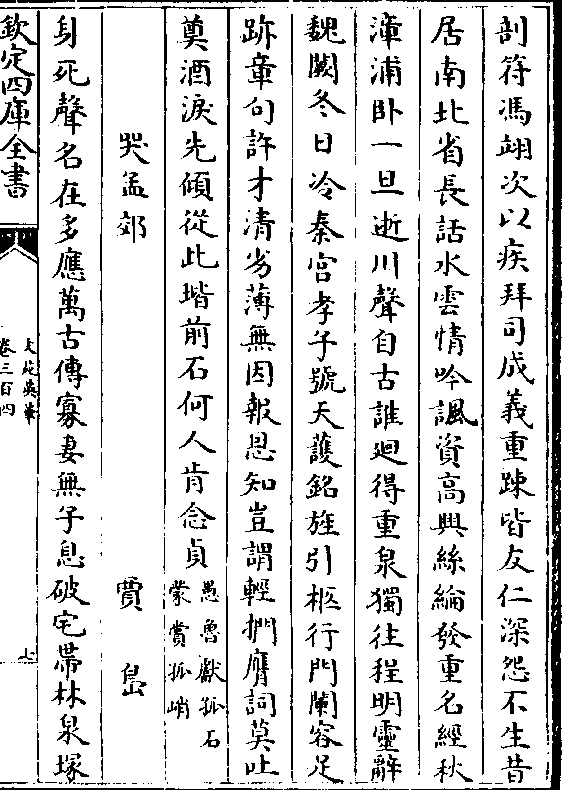 剖符馮翊次以疾拜司成義重踈皆友仁深怨不生昔
居南北省長話水雲情吟諷資高興絲綸發重名經秋
漳浦卧一旦逝川聲自古誰廻得重泉獨往程明靈辭
魏闕冬日冷秦宫孝子號天䕶銘旌引柩行門闌容足
跡章句許才清劣薄無因報恩知豈謂輕捫膺詞莫吐
奠酒淚先傾從此堦前石何人肯念貞愚魯獻孤石蒙賞孤峭
哭孟郊 賈島
身死聲名在多應萬古傳寡妻無子息破宅帶林泉塚
欽定四庫全書
文苑英華
卷三百四
七